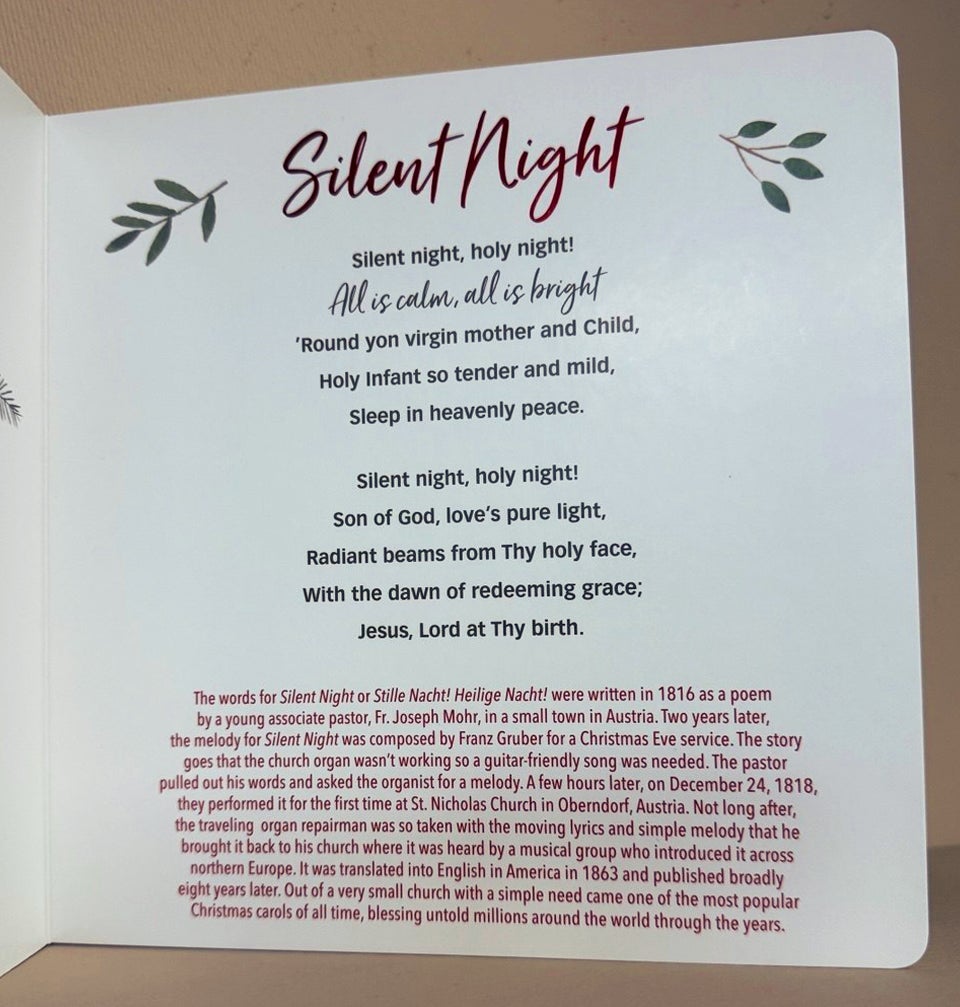 Silent Night
Silent night, holy night!
All is calm, all is bright
’Round yon virgin mother and Child,
Holy Infant so tender and mild,
Sleep in heavenly peace.
Silent night, holy night!
Son of God, love’s pure light,
Radiant beams from Thy holy face,
With the dawn of redeeming grace;
Jesus, Lord at Thy birth.
The words for Silent Night or Stille Nacht! Heilige Nacht! were written in 1816 as a poem
by a young associate pastor, Fr. Joseph Mohr, in a small town in Austria. Two years later,
the melody for Silent Night was composed by Franz Gruber for a Christmas Eve service. The story
goes that the church organ wasn’t working so a guitar-friendly song was needed. The pastor
pulled out his words and asked the organist for a melody. A few hours later, on December 24, 1818,
they performed it for the first time at St. Nicholas Church in Oberndorf, Austria. Not long after,
the traveling organ repairman was so taken with the moving lyrics and simple melody that he
brought it back to his church where it was heard by a musical group who introduced it across
northern Europe. It was translated into English in America in 1863 and published broadly
eight years later. Out of a very small church with a simple need came one of the most popular
Christmas carols of all time, blessing untold millions around the world through the years.